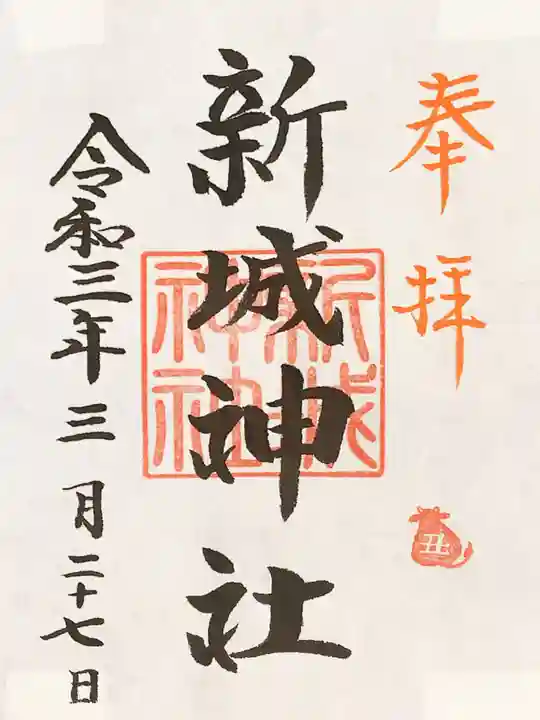 奉拝
丑
新城神社
新城
神社
令和三年三月二十七日